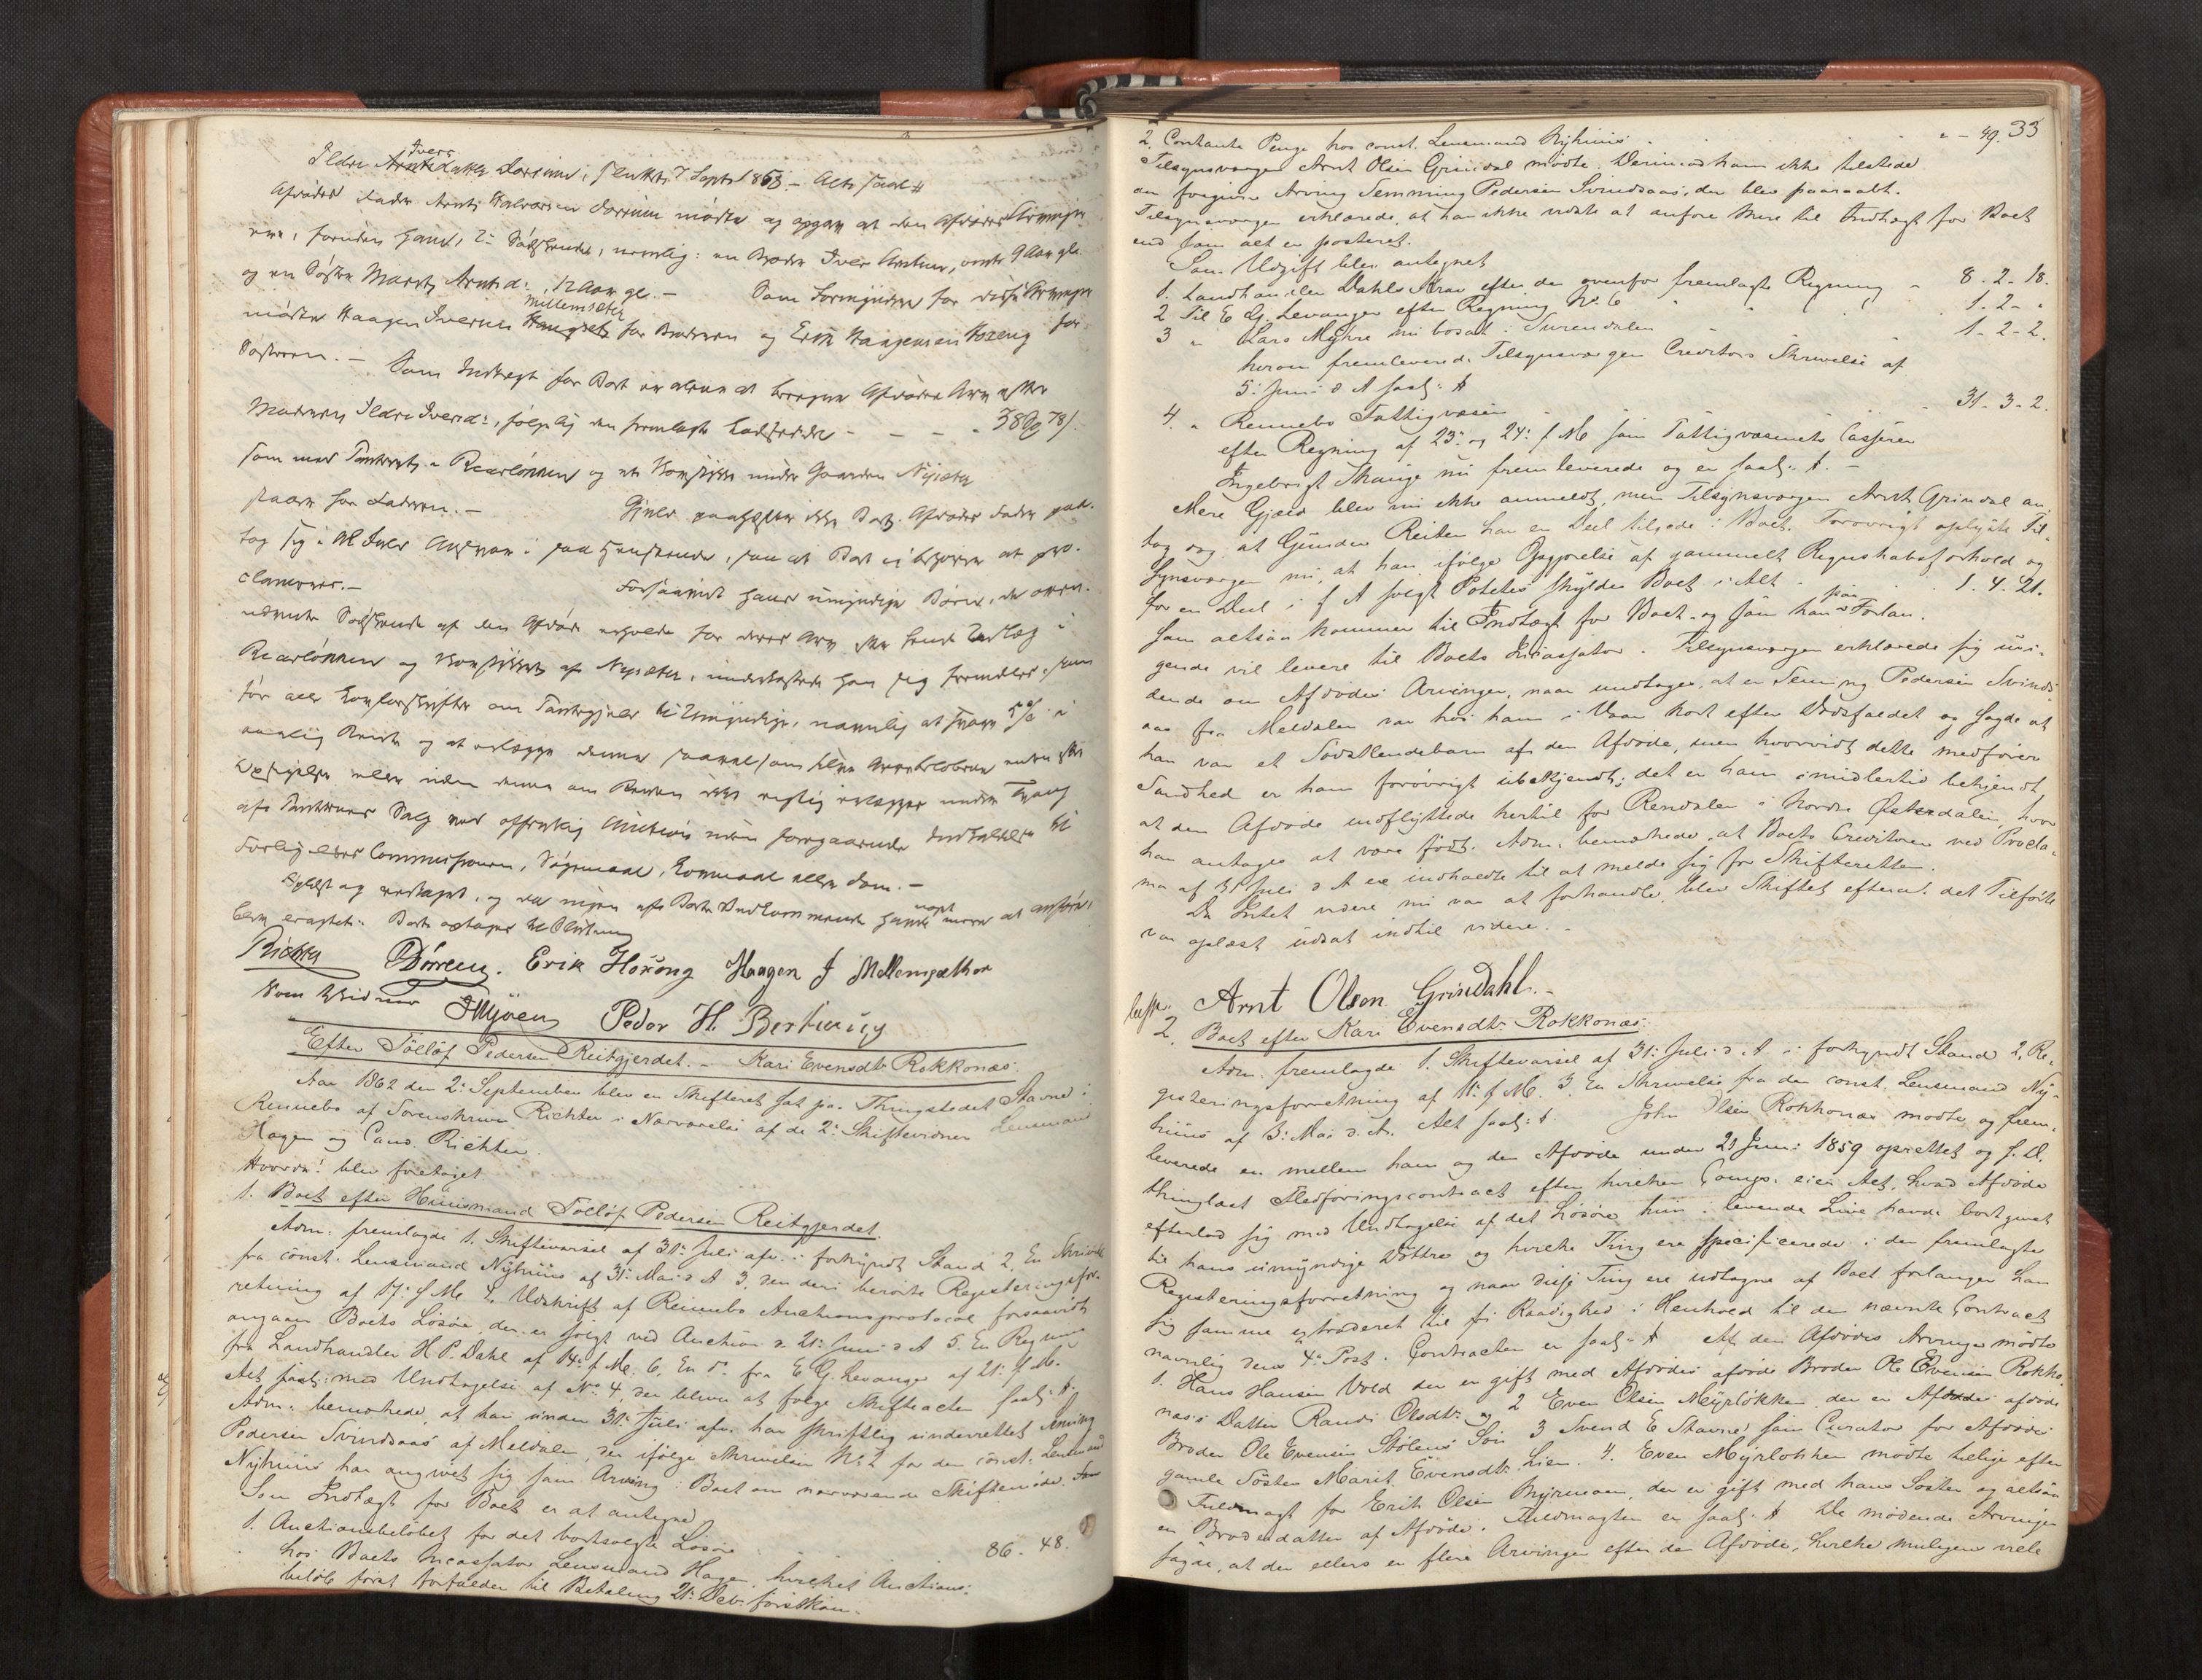 Ivers
Ildri Arntsdatter Dørreim, sluttet 7 Septb 1858 – Alts saal. #
Afdødes Fader Arnt Halvorsen Dørreim mødte og opgav at den Afdødes Arvinger
ere, foruden ham, 2de Sødskende, nemlig: en Broder Iver Arntsen, omtr 9 Aar gl.
og en Søster Marit Arntsd:, 12 Aar gl. – Som Formynder for disse Arvinger
Mellemsæter
mødte Haagen Iversen for Broderen og Erik Haagensen Hoseng for
Søsteren. – Som Indtægt for Boet er alene at beregne Afdødes Arv efter
Moderen Ildri Iversd:, følgelig den fremlagte Lodseddel - - - - 38 Spd 78 s.
som mod Panteret i Reverlønnen og et Kornstykke under Gaarden Nysæter
staaer hos Faderen. – Gjeld paahefter ikke Boet. Afdødes Fader paa-
tog sig i Alt Fald Ansvar i saa Henseende, saa at Boet ei behøver at pro-
clameres. – Forsaavidt hans umyndige Børn, de oven-
nævnte Sødskende af den Afdøde erholde for deres Arv ikke fuldt Udlæg i
Reverlønnen og Kornstykket af Nysæter, underkastede han sig fremdeles, som
før alle Lovforskrifter om Pantegjeld til Umyndige, navnlig at svare 4 % i
aarlig Rente og at erlægge denne saavelsom selve Arvebeløbene uden eller
Opsigelse eller uden denne om Renten ikke rigtig erlægges under Tvang
afs Panternes Salg ved offentlig Auction uden foregaaende Indkaldelse til
Forligelses Commissionen, Søgsmaal, Lovmaal eller Dom. –
Oplæst og vedtaget, og da ingen afs Boets Vedkommende havde noget mere at anføre,
blev eragtet: Boet optages til Slutning
Richter Dørrem. Erik Hoseng Haagen I Mellemsæther
Som Vidner THyven Peder H. Bertining
Efter Tølløf Pedersen Reitgjerdet. – Kari Evensdtr Rokkonæs.
Aar 1862 den 2: September blev en Skifteret sat paa Thingstedet Stavne i
Rennebo af Sorenskriver Richter i Nærværelse af de 2: Skiftevidner Lensmand
Hagen og Cand. Richter.
Hvorda! blev foretaget
1. Boet efter Huusmand Tølløf Pedersen Reitgjerdet.
Adm: fremlagde 1. Skiftevarsel af 31: Juli afv. i forkyndt Stand 2. En Skrivelse
fra const. Lensmand Nyhuus af 31: Mai d A 3. den deri berørte Registeringsfor-
retning af 17: s. M. 4. Udskrift af Rennebo Auctionsprotocol forsaavidt
angaar Boets Løsøre, der er solgt ved Auction d 21: Juni d A 5. En Regning
fra Landhandler H. P. Dahl af 14: f. M. 6. En do. fra E. G. Levanger af 21: f. M.
Alt saal: med Undtagelse af No 4, der bliver at følge Skifteacten saal: #.
Adm: bemærkede, at han under 31: Juli afv. har skriftlig underrettet Semming
Pedersen Svindsaas af Meldalen, der ifølge Skrivelsen No 2 fra den const. Lensmand
Nyhuus har angivet sig som Arving i Boet om nærværende Skiftemøde.
Som Indtægt for Boet er at antegne
1. Auctionsbeløbet for det bortsolgte Løsøre . . . 86. 48.
hos Boets Incassator Lensmand Hagen, hvilket Auctions-
beløb først forfalder til Betaling 21: Deb. førstkom.
33
2. Contante Penge hos const. Lensmand Nyhuus . . . " - 49.
Tilsynsværgen Arnt Olsen Grindal mødte. Derimod kom ikke tilstede
den foregivne Arving Semming Pedersen Svindsaas, der blev paaraabt.
Tilsynsværgen erklærede, at han ikke vidste at anføre Mere til Indtægt for Boet
end som alt er posteret.
Som Udgift blev antegnet
1. Landhandler Dahls Krav efter den ovenfor fremlagte Regning " 8 - 2 - 18.
2 Til E. G. Levanger efter Regning No. 6 " " 1. 2 - "
3 " Lars Myhre nu bosat i Surendalen - - 1 - 2 - 2.
hvorom fremleverede Tilsynsværgen Creditors Skrivelse af
5: Juni d A saal: #
4. " Rennebo Fattigvæsen - - - 31 - 3 - 2.
efter Regning af 23: og 24: f. M som Fattigvæsenets Casserer
Ingebrigt Skauge nu fremleverede og er saal: #. –
Mere Gjæld blev nu ikke anmeldt, men Tilsynsværgen Arnt Grindal an-
tog sog. at Gunder Reiten har en Deel tilgode i Boet. Forøvrigt oplyste Til-
synsværgen nu, at han ifølge Opgjørelse af gammelt Regnskabsforhold og
for en Deel i f A solgt Potetes skylder Boet i Alt - . . 1. 4. 21.
som altsaa kommer til Indtægt for Boet og som han paa Forlan-
gende vil levere til Boets Incassator. Tilsynsværgen erklærede sig uvi-
dende om Afdødes Arvinger, naar undtages, at en Semming Pedersen Svinds-
aas fra Meldalen var hos ham i Vaar kort efter Dødsfaldet og sagde at
han var et Sødskendebarn af den Afdøde, men hvorvidt dette medfører
Sandhed er ham forøvrigt ubekjendt; det er ham imidlertid bekjendt,
at den Afdøde indflyttede hertil fra Rendalen i Nordre Østerdalen, hvor
han antages at være født. Adm. bemærkede, at Boets Creditorer ved Procla-
ma af 31 Juli d A ere indkaldte til at melde sig for Skifteretten.
Da Intet videre nu var at forhandle, blev Skiftet efterat det Tilførte
var oplæst udsat indtil videre. –
Arnt Olsen Grindahl. –
2. Boet efter Kari Evensdtr Rokkonæs.
Adm. fremlagde 1. Skiftevarsel af 31: Juli d. A i forkyndt Stand 2, Re-
gisteringsforretning af 11: f. M. 3. En Skrivelse fra den const. Lensmand Ny-
huus af 3: Mai d. A. Alt saal: #. John Olsen Rokkonæs mødte og frem-
leverede en mellem ham og den Afdøde under 21 Juni 1859 oprettet og s. D.
thinglæst Fledføringscontract efter hvilken Comp. eier Alt, hvad Afdøde
efterlod sig med Undtagelse af det Løsøre hun i levende Live havde bortgivet
til hans umyndige Døttre og hvilke Ting ere specificerede i den fremlagte
Registeringsforretning og naar disse Ting ere udtagne af Boet forlanger han
sig samme extraderet til fri Raadighed i Henhold til den nævnte Contract
navnlig dens 4: Post. Contracten er saal: # Af den Afdødes Arvinger mødte
1. Hans Hansen Vold der er gift med Afdødes afdøde Broder Ole Evensen Rokko-
næs's Datter Randi Olsdtr. og 2 Even Olsen Myrløkken, der er Afdødes afdøde
Broder Ole Evensen Stølens Søn 3 Svend E Stavne som Curator for Afdødes
gamle Søster Marit Evensdtr. Lien. 4. Even Myrløkken mødte tillige efter
Fuldmagt for Erik Olsen Myrmoen, der er gift med hans Søster og altsaa
en Broderdatter af Afdøde. Fuldmagten er saal: # De mødende Arvinger
sagde, at der ellers er flere Arvinger efter den Afdøde, hvilke muligens ville